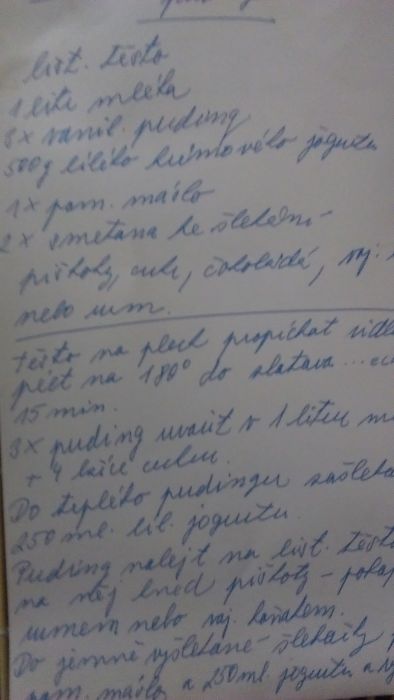 list. těsto
1 litr mléka
3x vanil. puding
500g bílého krémového jogurtu
1x pom. máslo
2x smetana ke šlehání
piškoty, cukr, čokoláda, vaj.
nebo rum.
těsto na plech propíchat vidl
péct na 180° do zlatova ...
15 min.
3x puding uvařit v 1 litru m
+ 4 lžíce cukru.
Do teplého pudingu zašleha
250 ml. bíl. jogurtu.
Puding nalejt na list. těsto
na něj hned piškoty - pokap
rumem nebo vaj. koňakem.
Do jemně vyšlehané šlehačky
pom. máslo a 250ml. jogurtu a